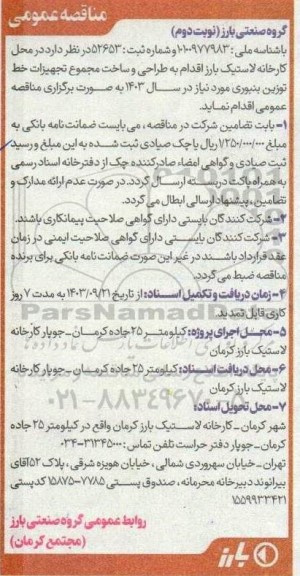 مناقصه عمومی
گروه صنعتی بارز (نوبت دوم)
باشناسه ملی : ۱۰۱۰۰۹۷۷۹۸۳ و شماره ثبت : ۵۲۶۵۳ در نظر دارد در محل
کارخانه لاستیک بارز اقدام به طراحی و ساخت مجموع تجهیزات خط
توزین بنبوری مورد نیاز در سال ۱۴۰۳ به صورت برگزاری مناقصه
عمومی اقدام نماید.
۱- بابت تضامین شرکت در مناقصه ، می بایست ضمانت نامه بانکی به
مبلغ ۷۲۵۰/۰۰۰/۰۰۰ ریال یا چک صیادی ثبت شده به این مبلغ و رسید
ثبت صیادی و گواهی امضاء صادرکننده چک از دفترخانه اسناد رسمی
به همراه پاکت دربسته ارسال گردد. در صورت عدم ارائه مدارک و
تضامین، پیشنهاد ارسالی ابطال می گردد.
۲- شرکت کنندگان بایستی دارای گواهی صلاحیت پیمانکاری باشند.
۳- شرکت کنندگان بایستی دارای گواهی صلاحیت ایمنی در زمان
عقد قرارداد باشند در غیر این صورت ضمانت نامه بانکی برای برنده
مناقصه ضبط می گردد.
۴- زمان دریافت و تکمیل اسناد: از تاریخ ۱۴۰۳/۰۹/۲۱ به مدت ۷ روز
کاری قابل تمدید
۵- محل اجرای پروژه: کیلومتر ۲۵ جاده کرمان - جوپار کارخانه
لاستیک بارز کرمان
۶- محل دریافت اسناد: کیلومتر ۲۵ جاده کرمان - جوپار کارخانه
لاستیک بارز کرمان
۷- محل تحویل اسناد:
شهر کرمان - کارخانه لاستیک بارز کرمان واقع در کیلومتر ۲۵ جاده
کرمان - جوپار دفتر حراست تلفن تماس : ۳۱۳۴۵۰۰۰-۰۳۴
تهران - خیابان سهروردی شمالی ، خیابان هویزه شرقی ، پلاک ۵۲ آقای
بیرانوند دبیرخانه محرمانه ، صندوق پستی ۷۷۸۵-۱۵۸۷۵ کدپستی
۱۵۵۹۹۳۳۴۲۱
روابط عمومی گروه صنعتی بارز
(مجتمع کرمان)
بارز
ParsNamadData
۰۲۱-۸۸۳۴۹۶۷۰-۵